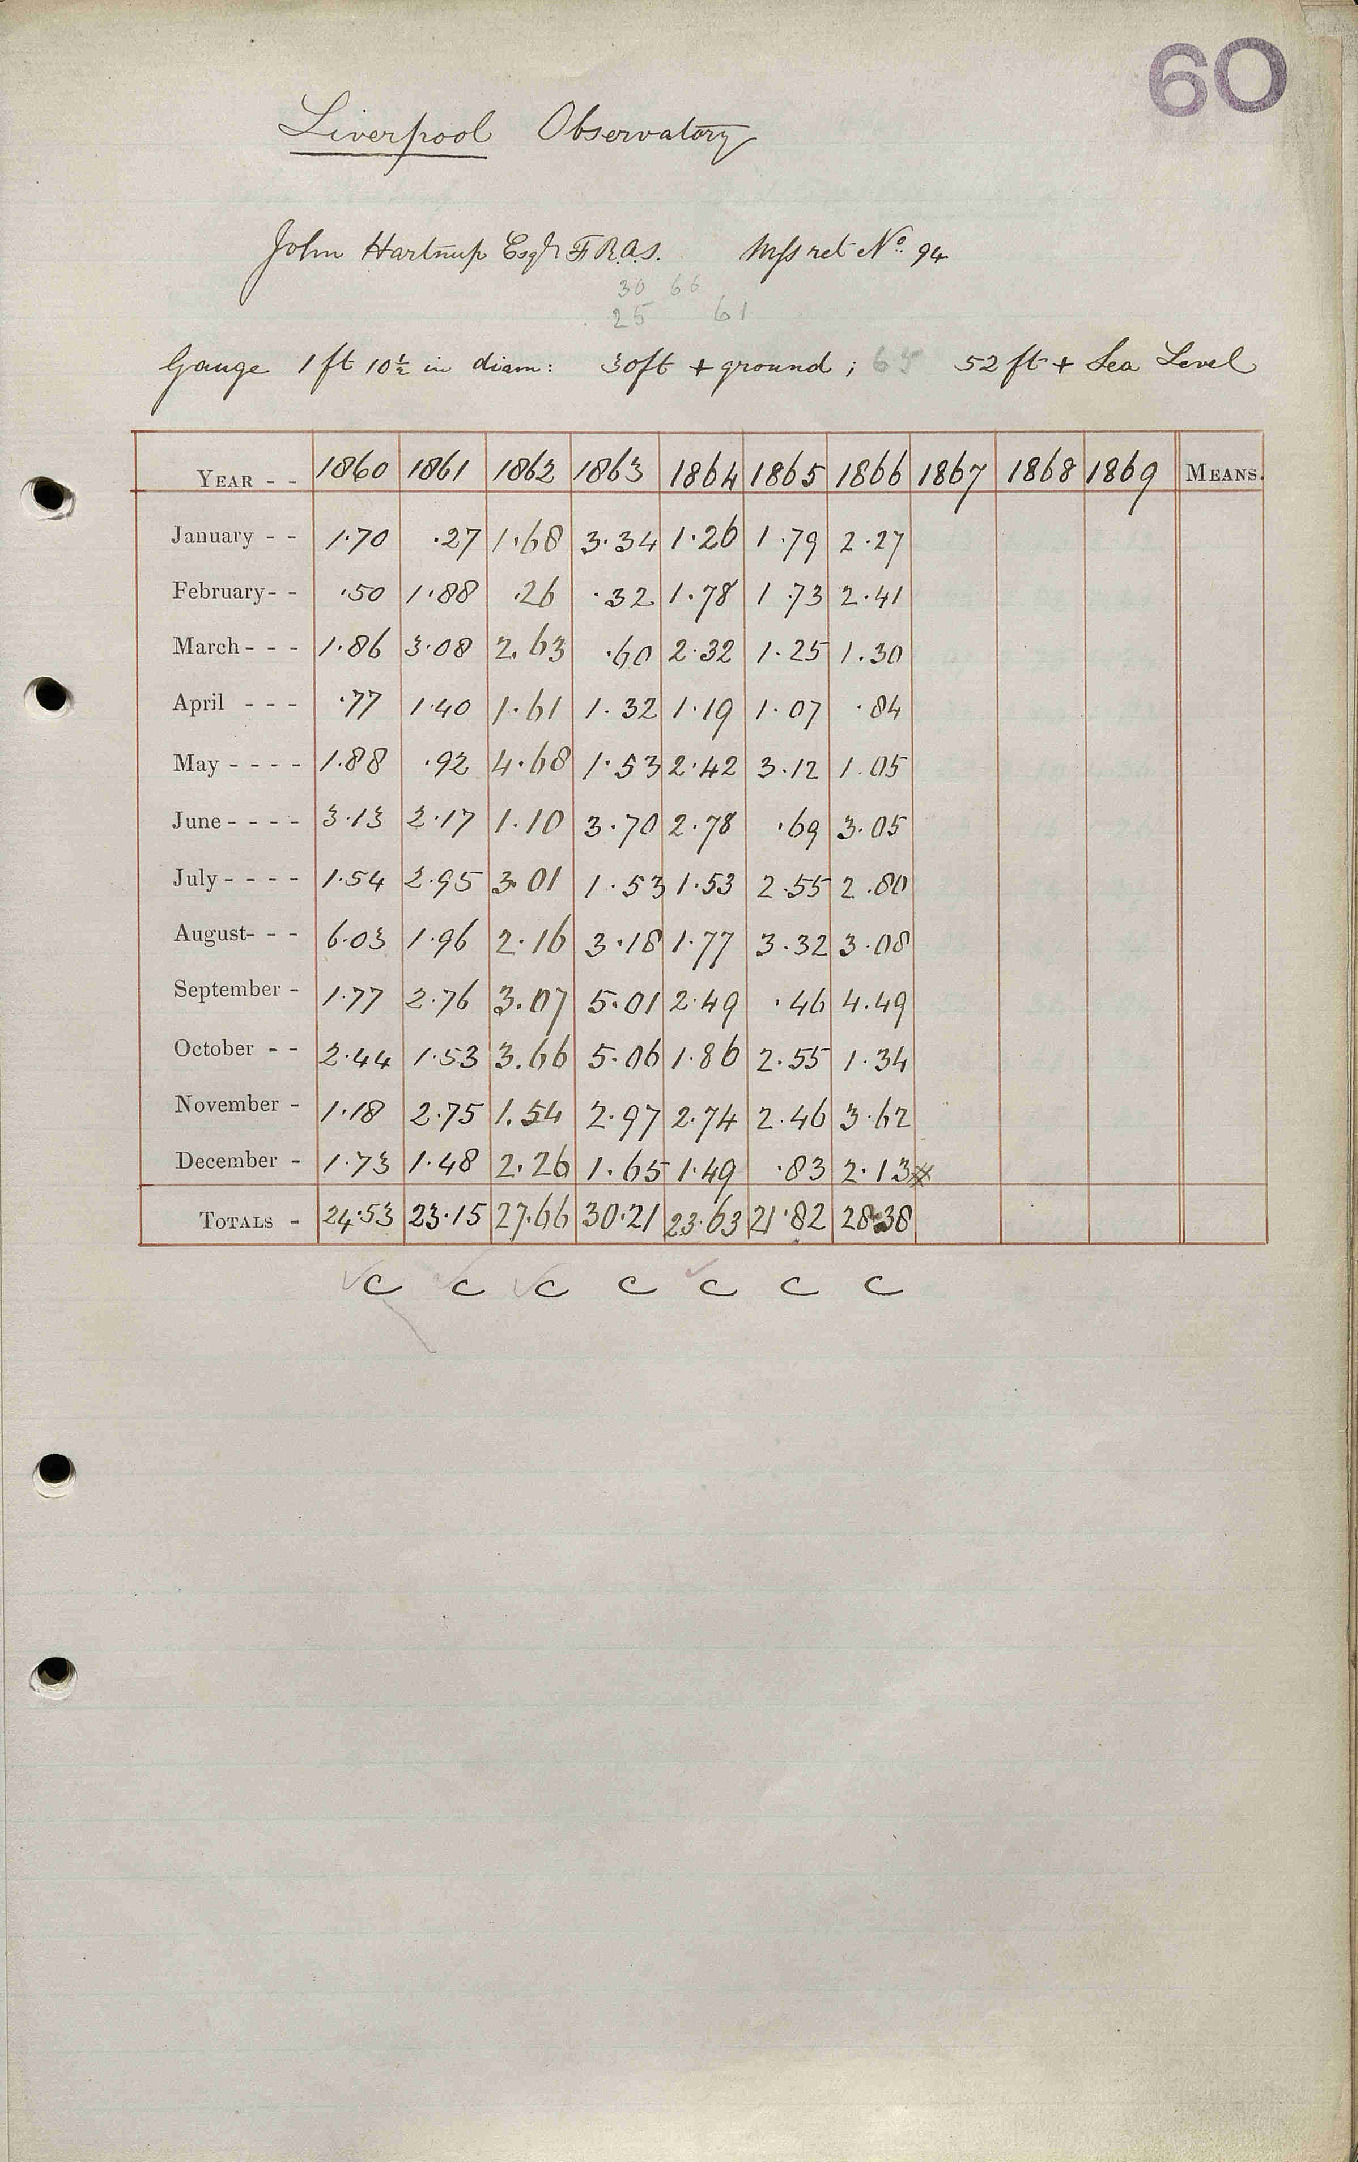 60
Liverpool Observatory
John Hartnup Esqr F.R.A.S. Mss ret No. 94
30 66
25 61
Gauge 1 ft 10½ in diam: 30ft + ground; 65 52 ft + Sea Level
YEAR - - 1860 1861 1862 1863 1864 1865 1866 1867 1868 1869 MEANS.
January - - 1.70 .27 1.68 3.34 1.26 1.79 2.27
February- - .50 1.88 .26 .32 1.78 1.73 2.41
March - - - 1.86 3.08 2.63 .60 2.32 1.25 1.30
April - - - .77 1.40 1.61 1.32 1.19 1.07 .84
May - - - - 1.88 .92 4.68 1.53 2.42 3.12 1.05
June - - - - 3.13 2.17 1.10 3.70 2.78 .69 3.05
July - - - - 1.54 2.95 3.01 1.53 1.53 2.55 2.80
August- - - 6.03 1.96 2.16 3.18 1.77 3.32 3.08
September - 1.77 2.76 3.07 5.01 2.49 .46 4.49
October - - 2.44 1.53 3.66 5.06 1.86 2.55 1.34
November - 1.18 2.75 1.54 2.97 2.74 2.46 3.62
December - 1.73 1.48 2.26 1.65 1.49 .83 2.13
TOTALS - 24.53 23.15 27.66 30.21 23.63 21.82 28.38
c c c c c c c